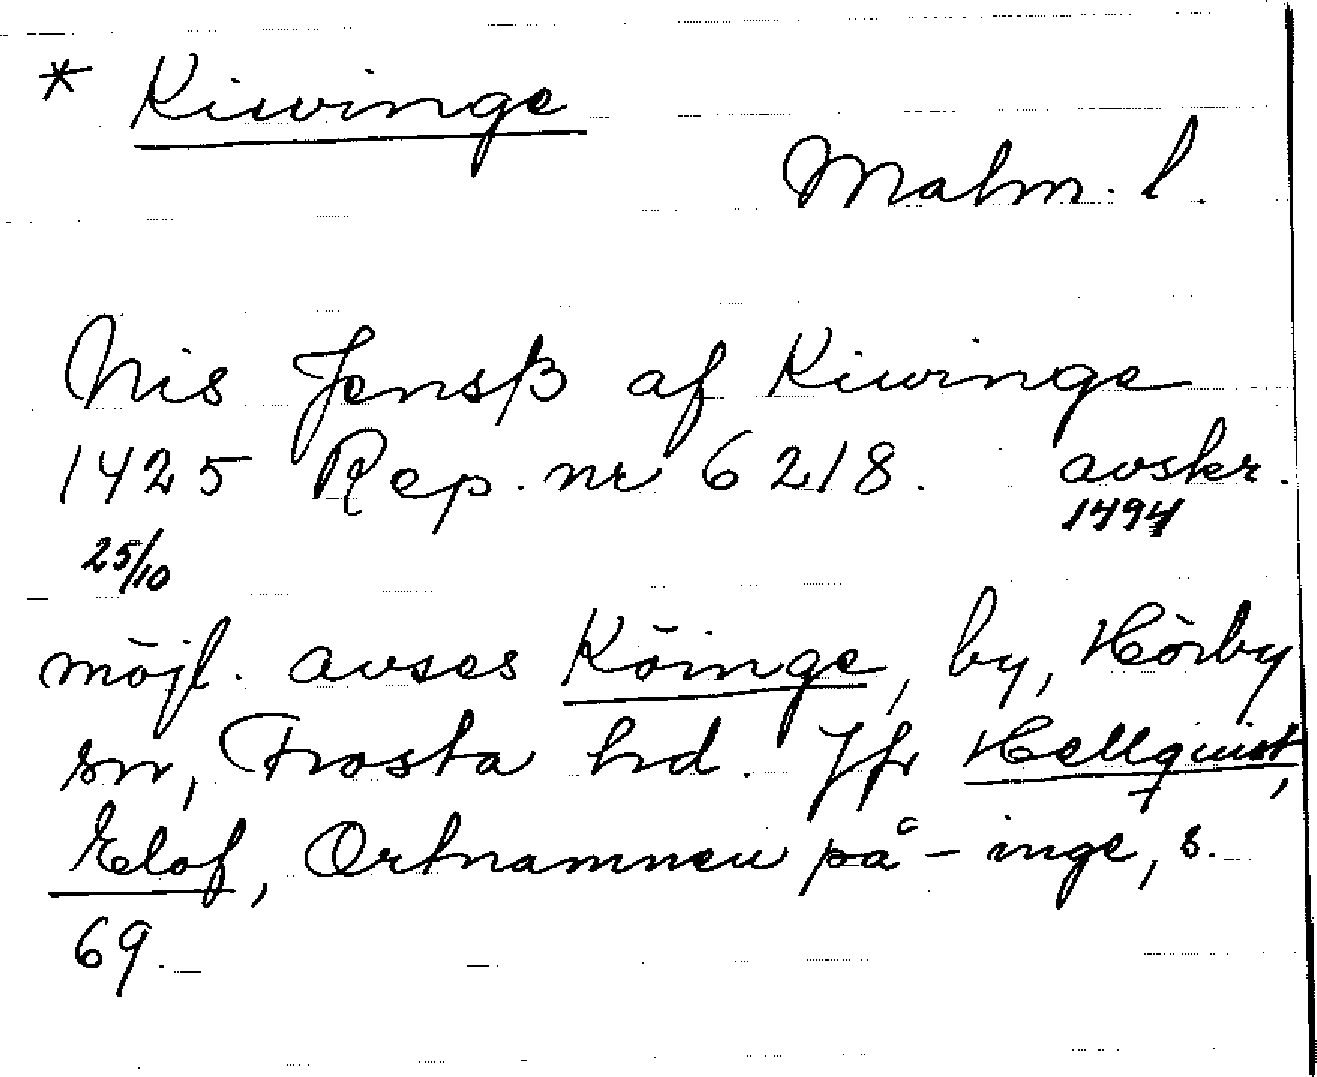 * Kiwinge
Malm. l.
Nis Jensß af Kiwinge
1425 Rep. nr 6218. avskr.
25/10 1494
möjl. avses Köinge, by, Hörby
sn, Frosta hd. Jfr Hellquist,
Elof, Ortnamnen på -inge, s.
69.